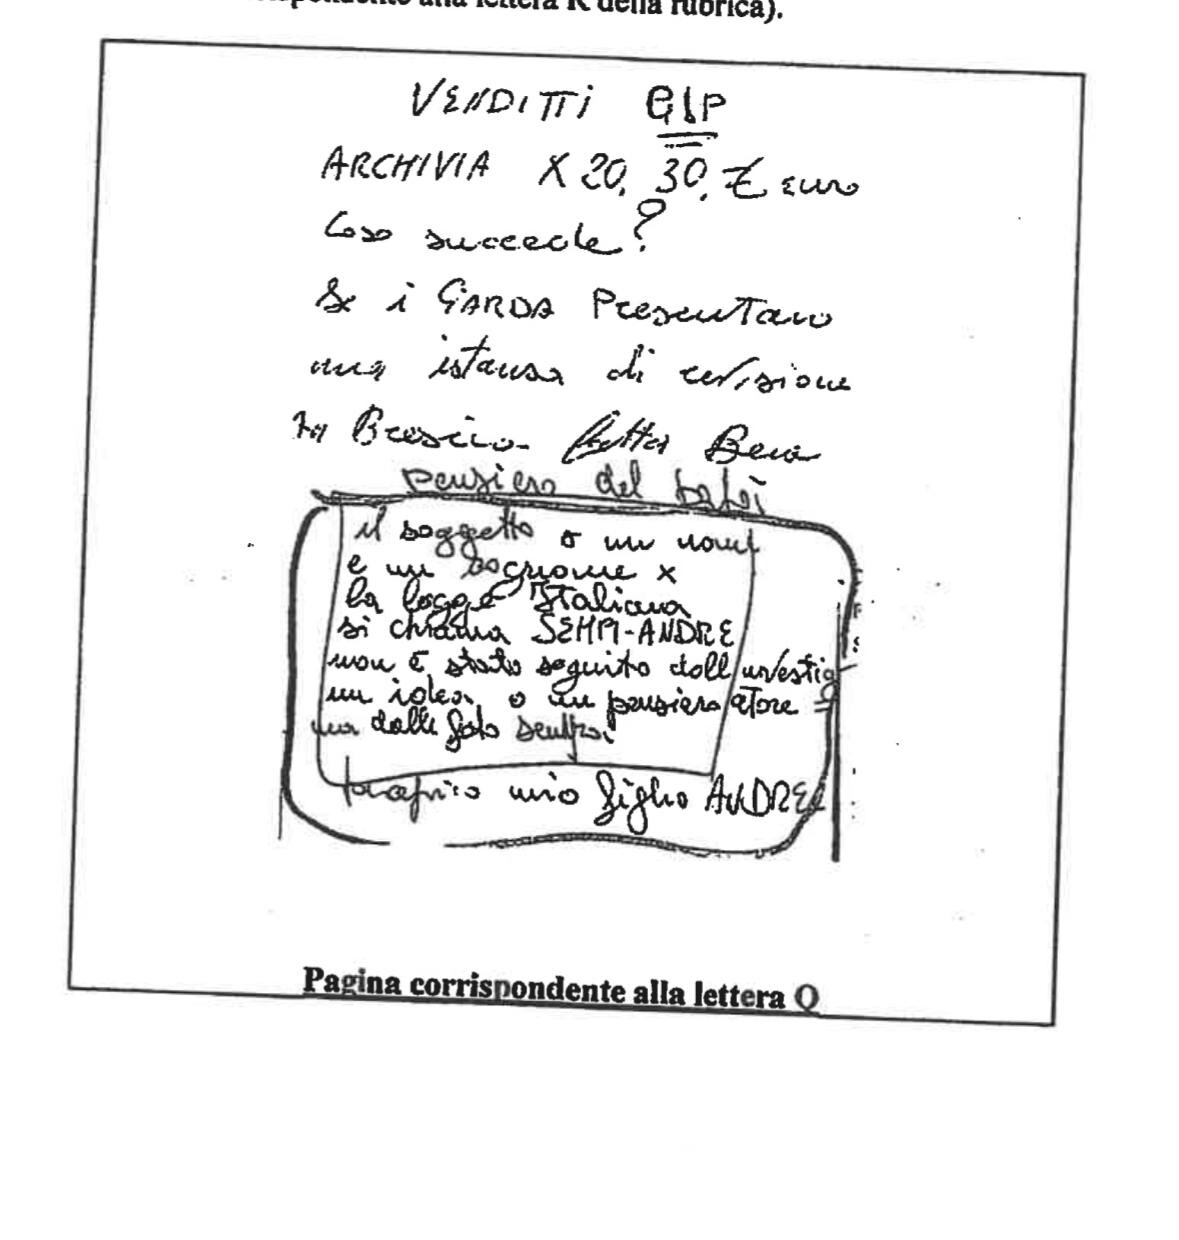 rispondente alla lettera R della rubrica).
VENDITTI GIP
ARCHIVIA X 20. 30. € euro
Cosa succede?
Se i GARDA Presentano
una istansa di revisione
a Brescia Bene
pensiero del papi
il soggetto a un nome
e un cognome x
la legge Italiana
si chiama SEMPI-ANDRE
non è stato seguito dall investig
un idea o un pensiero atore =
ma dalle foto sembrai
mio figlio ANDRE
Pagina corrispondente alla lettera Q